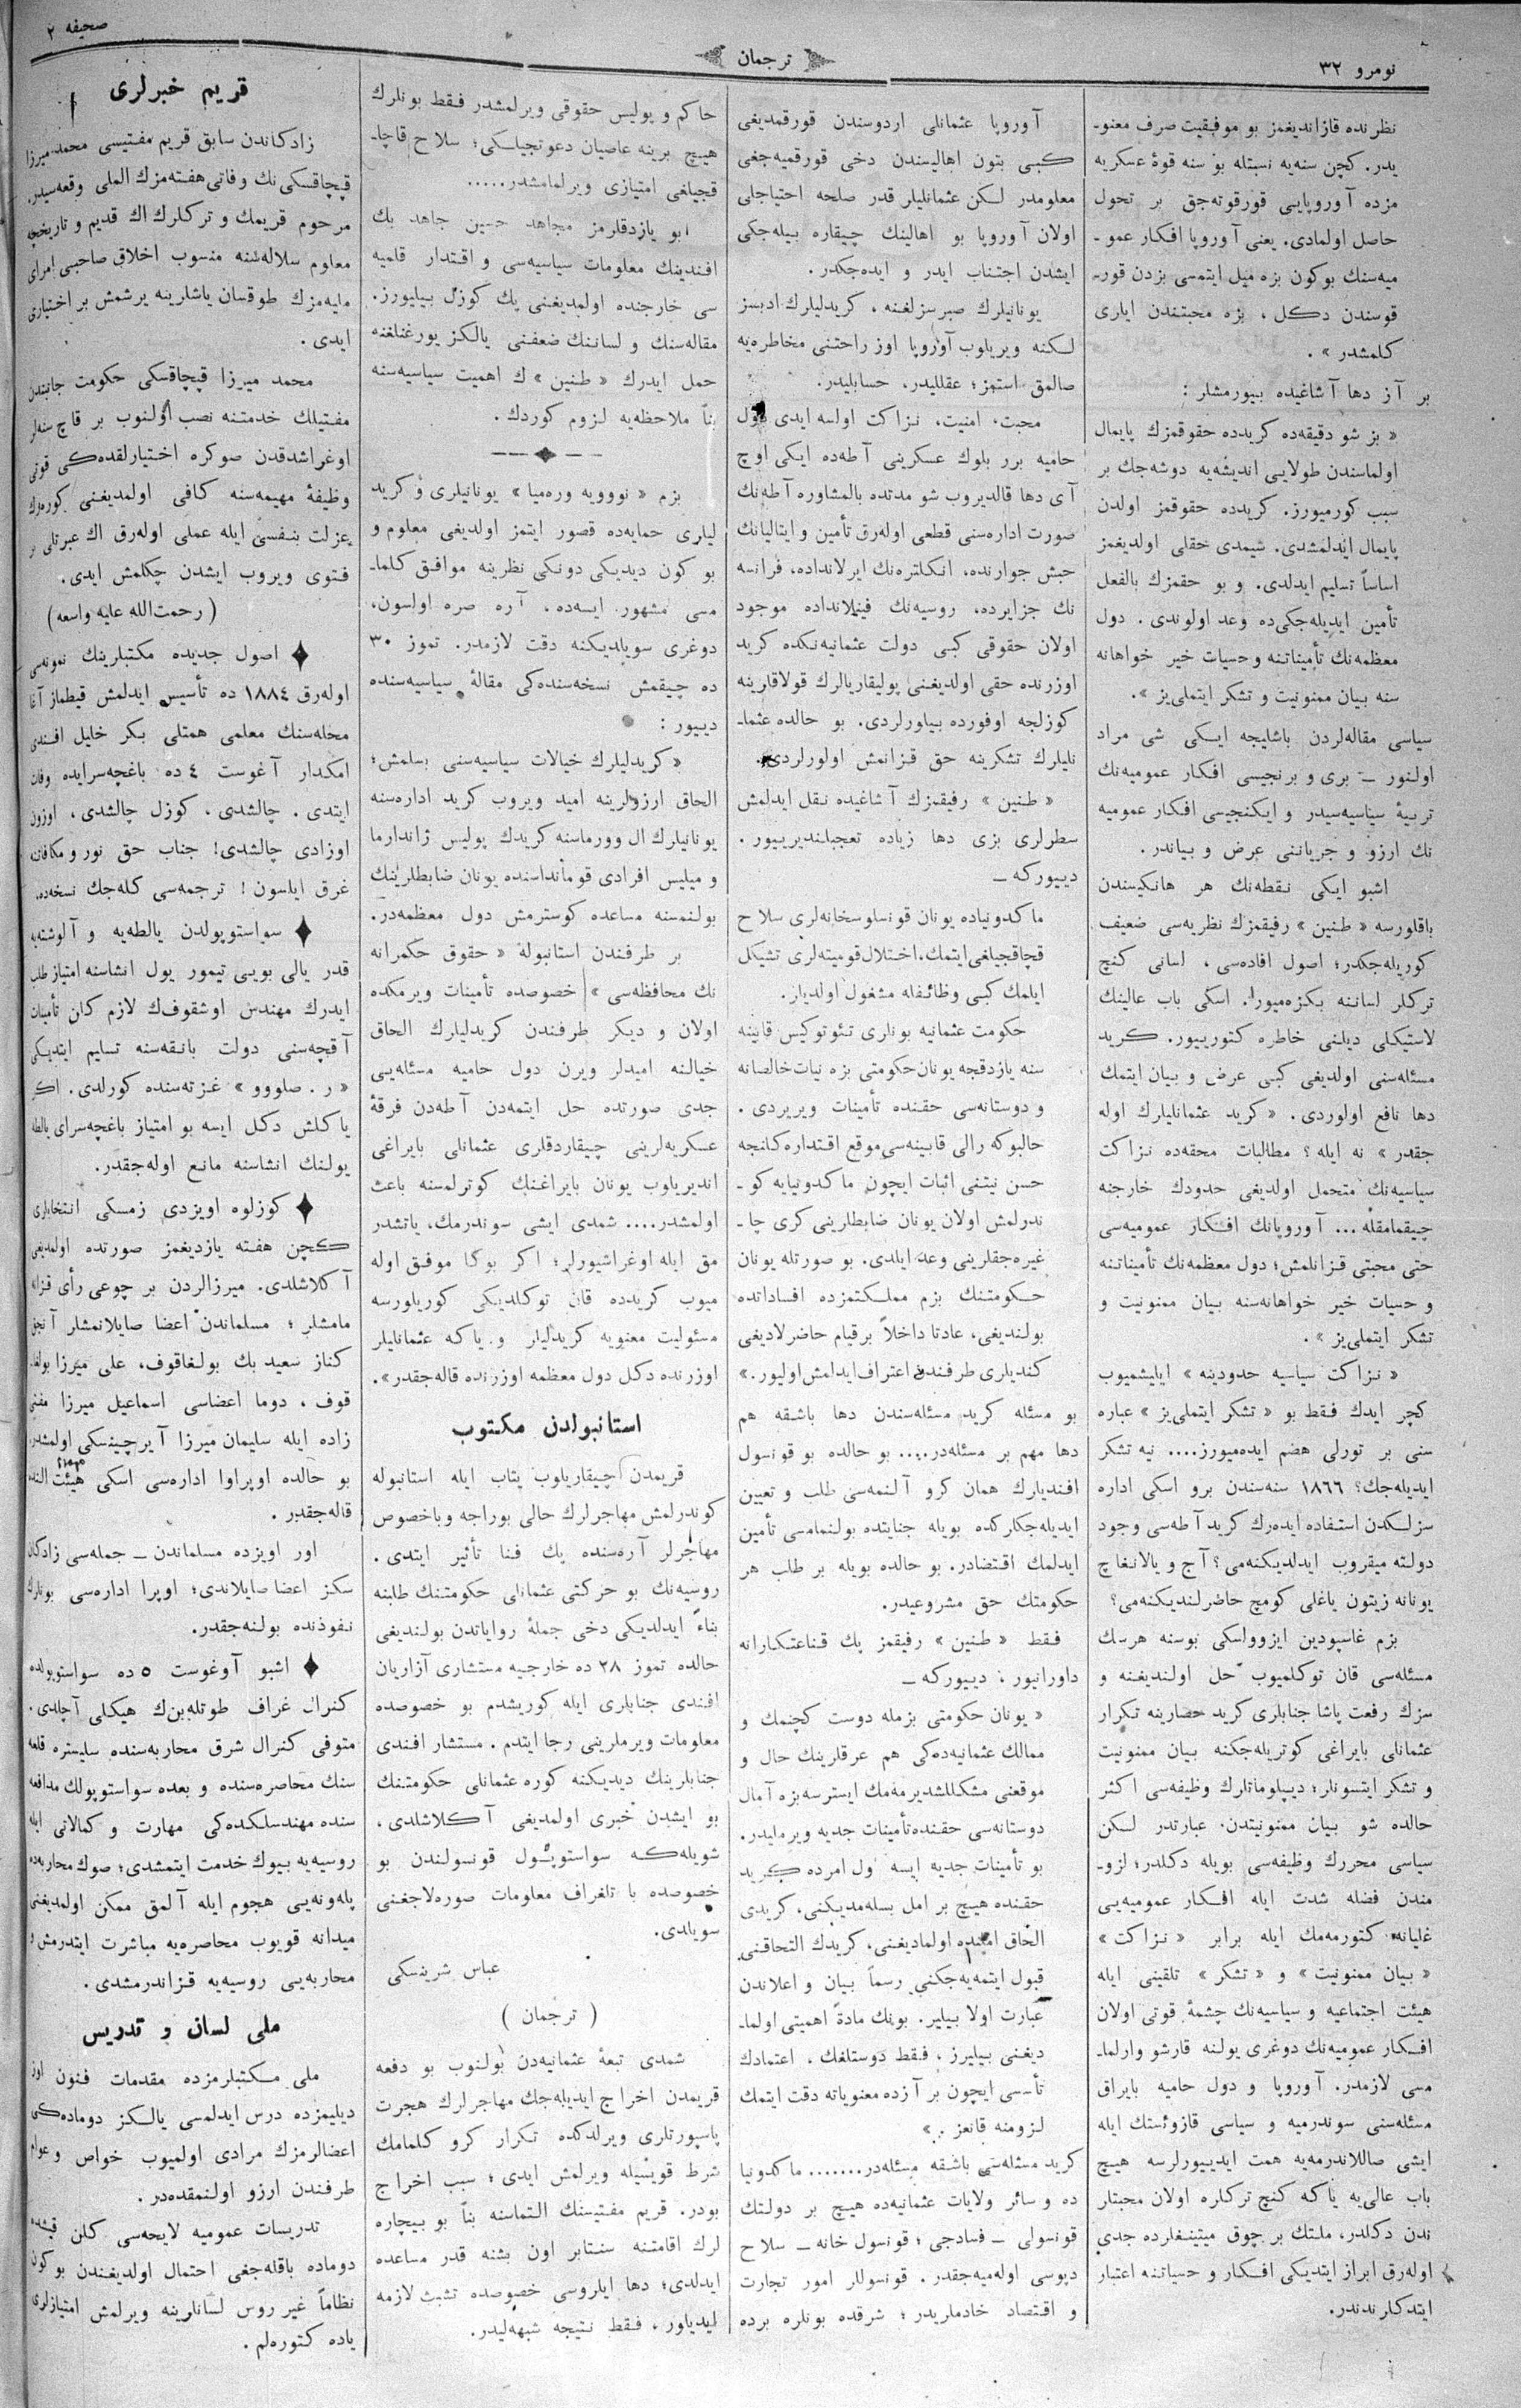 نومرو ٣٢
ترجمان
صحيفه ٢
نظرنده قازانديغمز بو موفقيت صرف معنو-
يدر. كچن سنه‌يه نسبتله بو سنه قوۀ عسكريه
مزده آوروپايى قورقوته‌جق بر تحول
حاصل اولمادى. يعنى آوروپا افكار عمو-
ميه‌سنك بوكون بزه ميل ايتمسى بزدن قور-
قوسندن دكل ، بزه محبتندن ايلرى
كلمشدر » .
بر آز دها آشاغيده بيورمشلر :
« بز شو دقيقه‌ده كريدده حقوقمزك پايمال
اولماسندن طولايى انديشه‌يه دوشه‌جك بر
سبب كورميورز. كريدده حقوقمز اولدن
پايمال ايدلمشدى. شيمدى حقلى اولديغمز
اساساً تسليم ايدلدى. و بو حقمزك بالفعل
تأمين ايديله‌جكى‌ده وعد اولوندى . دول
معظمه‌نك تأميناتنه و حسيات خير خواهانه
سنه بيان ممنونيت و تشكر ايتملى‌يز ».
سياسى مقاله‌لردن باشليجه ايكى شى مراد
اولنور – برى و برنجيسى افكار عموميه‌نك
تربيۀ سياسيه‌سيدر و ايكنجيسى افكار عموميه
نك ارزو و جرياننى عرض و بياندر.
اشبو ايكى نقطه‌نك هر هانكيسندن
باقلورسه « طنين » رفيقمزك نظريه‌سى ضعيف
كوريله‌جكدر؛ اصول افاده‌سى ، لسانى كنچ
تركلر لساننه بكزه‌ميور. اسكى باب عالينك
لاستيكلى ديلنى خاطره كتورييور. كريد
مسئله‌سنى اولديغى كبى عرض و بيان ايتمك
دها نافع اولوردى. « كريد عثمانليلرك اوله
جقدر » نه ايله ؟ مطالبات محقه‌ده نزاكت
سياسيه‌نك متحمل اولديغى حدودك خارجنه
چيقمامقله ... آوروپانك افكار عموميه‌سى
حتى محبتى قزانلمش؛ دول معظمه‌نك تأميناتنه
و حسيات خير خواهانه‌سنه بيان ممنونيت و
تشكر ايتملى‌يز » .
« نزاكت سياسيه حدودينه » ايليشميوب
كچر ايدك فقط بو « تشكر ايتملى‌يز » عباره
سنى بر تورلى هضم ايده‌ميورز.... نيه تشكر
ايديله‌جك؟ ١٨٦٦ سنه‌سندن برو اسكى اداره
سزلكدن استفاده ايده‌رك كريد آطه‌سى وجود
دولته ميقروب ايدلديكنه‌مى؟ آج و يالانغاچ
يونانه زيتون ياغلى كومچ حاضرلنديكنه‌مى؟
بزم غاسپودين ايزوولسكى بوسنه هرسك
مسئله‌سى قان توكلميوب حل اولنديغنه و
سزك رفعت پاشا جنابلرى كريد حضارينه تكرار
عثمانلى بايراغى كوتريله‌جكنه بيان ممنونيت
و تشكر ايتسونلر؛ ديپلوماتلرك وظيفه‌سى اكثر
حالده شو بيان ممنونيتدن عبارتدر لكن
سياسى محررك وظيفه‌سى بويله دكلدر؛ لزو-
مندن فضله شدت ايله افكار عموميه‌يى
غليانه كتورمه‌مك ايله برابر « نزاكت »
« بيان ممنونيت » و « تشكر » تلقينى ايله
هيئت اجتماعيه و سياسيه‌نك چشمۀ قوتى اولان
افكار عموميه‌نك دوغرى يولنه قارشو وارلما-
مسى لازمدر. آوروپا و دول حاميه بايراق
مسئله‌سنى سوندرميه و سياسى قازوئستك ايله
ايشى صاللاندرمه‌يه همت ايدييورلرسه هيچ
باب عالى‌يه ياكه كنچ تركلره اولان محبتلر
ندن دكلدر، ملتك بر چوق ميتينغلرده جدى
اوله‌رق ابراز ايتديكى افكار و حسياتنه اعتبار
ايتدكلرندندر.
آوروپا عثمانلى اردوسندن قورقمديغى
كبى بتون اهاليسندن دخى قورقميه‌جغى
معلومدر لكن عثمانليلر قدر صلحه احتياجلى
اولان آوروپا بو اهالينك چيقاره بيله‌جكى
ايشدن اجتناب ايدر و ايده‌جكدر.
يونانيلرك صبرسزلغنه ، كريدليلرك ادبسز
لكنه ويريلوب آوروپا اوز راحتنى مخاطره‌يه
صالمق استمز؛ عقلليدر، حسابليدر.
محبت، امنيت، نزاكت اولسه ايدى دول
حاميه برر بلوك عسكرينى آطه‌ده ايكى اوچ
آى دها قالديروب شو مدتده بالمشاوره آطه‌نك
صورت اداره‌سنى قطعى اوله‌رق تأمين و ايتاليانك
حبش جوارنده، انكلتره‌نك ايرلانداده، فرانسه
نك جزايرده، روسيه‌نك فينلانداده موجود
اولان حقوقى كبى دولت عثمانيه‌نكده كريد
اوزرنده حقى اولديغنى پوليقاريالرك قولاقلرينه
كوزلجه اوفورده بيلورلردى. بو حالده عثما-
نليلرك تشكرينه حق قزانمش اولورلردى.
« طنين » رفيقمزك آشاغيده نقل ايدلمش
سطرلرى بزى دها زياده تعجبلنديرييور .
دييوركه –
ماكدونياده يونان قونسلوسخانه‌لرى سلاح
قچاقچيلغى ايتمك. اختلال قوميته‌لرى تشيكل
ايلمك كبى وظائفله مشغول اولديلر.
حكومت عثمانيه بونلرى تئوتوكيس قابينه
سنه يازدقجه يونان حكومتى بزه نيات خالصانه
و دوستانه‌سى حقنده تأمينات ويريردى .
حالبوكه رالى قابينه‌سى موقع اقتداره كلنجه
حسن نيتنى اثبات ايچون ماكدونيايه كو-
ندرلمش اولان يونان ضابطلرينى كرى چا-
غيره‌جقلرينى وعد ايلدى. بو صورتله يونان
حكومتنك بزم مملكتمزده افساداتده
بولنديغى، عادتا داخلاً برقيام حاضرلاديغى
كنديلرى طرفندن اعتراف ايدلمش اوليور.»
بو مسئله كريد مسئله‌سندن دها باشقه هم
دها مهم بر مسئله‌در.... بو حالده بو قونسول
افنديلرك همان كرو آلنمه‌سى طلب و تعيين
ايديله‌جكلركده بويله جنايتده بولنمامسى تأمين
ايدلمك اقتضادر. بو حالده بويله بر طلب هر
حكومتك حق مشروعيدر.
فقط « طنين » رفيقمز پك قناعتكارانه
داورانيور ، دييوركه –
« يونان حكومتى بزمله دوست كچنمك و
ممالك عثمانيه‌ده‌كى هم عرقلرينك حال و
موقعنى مشكللشديرمه‌مك ايسترسه بزه آمال
دوستانه‌سى حقنده تأمينات جديه ويرمليدر.
بو تأمينات جديه ايسه اول امرده كريد
حقنده هيچ بر امل بسله‌مديكنى، كريدى
الحاق املنده اولماديغنى، كريدك التحاقنى
قبول ايتمه‌يه‌جكنى رسماً بيان و اعلاندن
عبارت اولا بيلير. بونك مادةً اهميتى اولما-
ديغنى بيليرز ، فقط دوستلغك ، اعتمادك
تأسسى ايچون بر آزده معنوياته دقت ايتمك
لزومنه قانعز . »
كريد مسئله‌سى باشقه مسئله‌در....... ماكدونيا
ده و سائر ولايات عثمانيه‌ده هيچ بر دولتك
قونسولى – فسادجى ؛ قونسول خانه – سلاح
دپوسى اوله‌ميه‌جقدر. قونسوللر امور تجارت
و اقتصاد خادملريدر ؛ شرقده بونلره برده
حاكم و پوليس حقوقى ويرلمشدر فقط بونلرك
هيچ برينه عاصيان دعوتجيلكى؛ سلاح قاچا-
قچيلغى امتيازى ويرلمامشدر.....
بو يازدقلرمز مجاهد حسين جاهد بك
افندينك معلومات سياسيه‌سى و اقتدار قلميه
سى خارجنده اولمديغنى پك كوزل بيليورز.
مقاله‌سنك و لساننك ضعفنى يالكز يورغنلغنه
حمل ايدرك « طنين » ك اهميت سياسيه‌سنه
بناً ملاحظه‌يه لزوم كوردك.
بزم « نوويه وره‌ميا » يونانيلرى و كريد
ليلرى حمايه‌ده قصور ايتمز اولديغى معلوم و
بو كون ديديكى دونكى نظرينه موافق كلما-
مسى مشهور ايسه‌ده ، آره صره اولسون،
دوغرى سويلديكنه دقت لازمدر. تموز ٣٠
ده چيقمش نسخه‌سنده‌كى مقالۀ سياسيه‌سنده
دييور :
« كريدليلرك خيالات سياسيه‌سنى بسلمش؛
الحاق ارزولرينه اميد ويروب كريد اداره‌سنه
يونانيلرك ال وورماسنه كريدك پوليس ژاندارما
و ميليس افرادى قوماندا‌سنده يونان ضابطلرينك
بولنمسنه مساعده كوسترمش دول معظمه‌در.
بر طرفندن استانبوله « حقوق حكمرانه
نك محافظه‌سى » خصوصده تأمينات ويرمكده
اولان و ديكر طرفندن كريدليلرك الحاق
خيالنه اميدلر ويرن دول حاميه مسئله‌يى
جدى صورتده حل ايتمه‌دن آطه‌دن فرقۀ
عسكريه‌لرينى چيقاردقلرى عثمانلى بايراغى
انديريلوب يونان بايراغنك كوترلمسنه باعث
اولمشدر.... شمدى ايشى سوندرمك، ياتشدر
مق ايله اوغراشيورلر؛ اكر بوكا موفق اوله
ميوب كريدده قان توكلديكى كوريلورسه
مسئوليت معنويه كريدليلر و ياكه عثمانليلر
اوزرنده دكل دول معظمه اوزرنده قاله‌جقدر».
استانبولدن مكتوب
قريمدن چيقاريلوب يتاب ايله استانبوله
كوندرلمش مهاجرلرك حالى بوراجه و باخصوص
مهاجرلر آره‌سنده پك فنا تأثير ايتدى .
روسيه‌نك بو حركتى عثمانلى حكومتنك طلبنه
بناءً ايدلديكى دخى جملۀ رواياتدن بولنديغى
حالده تموز ٢٨ ده خارجيه مستشارى آزاريان
افندى جنابلرى ايله كوريشدم بو خصوصده
معلومات ويرملرينى رجا ايتدم . مستشار افندى
جنابلرينك ديديكنه كوره عثمانلى حكومتنك
بو ايشدن خبرى اولمديغى آكلاشلدى ،
شويله‌كه سواستوپول قونسولندن بو
خصوصده با تلغراف معلومات صوره‌لاجغنى
سويلدى.
عباس شرينسكى
( ترجمان )
شمدى تبعۀ عثمانيه‌دن بولنوب بو دفعه
قريمدن اخراج ايديله‌جك مهاجرلرك هجرت
پاسپورتلرى ويرلدكده تكرار كرو كلمامك
شرط قويسيله ويرلمش ايدى ؛ سبب اخراج
بودر. قريم مفتيسنك التماسنه بناً بو بيچاره
لرك اقامتنه سنتابر اون بشنه قدر مساعده
ايدلدى؛ دها ايلروسى خصوصده تشبث لازمه
ايديلور ، فقط نتيجه شبهه‌ليدر.
قريم خبرلرى
زادكاندن سابق قريم مفتيسى محمد ميرزا
قپچاقسكى نك وفاتى هفته‌مزك المى وقعه‌سيدر.
مرحوم قريمك و تركلرك اك قديم و تاريخچه
معلوم سلاله‌سنه منسوب اخلاق صاحبى امراى
مليه‌مزك طوقسان ياشلرينه يرشمش بر اختيارى
ايدى .
محمد ميرزا قپچاقسكى حكومت جانبندن
مفتيلك خدمتنه نصب اولنوب بر قاچ سنه‌لر
اوغراشدقدن صوكره اختيارلقده‌كى قوتى
وظيفۀ مهيمه‌سنه كافى اولمديغنى كوره‌رك
عزلت بنفسى ايله عملى اوله‌رق اك عبرتلى بر
فتوى ويروب ايشدن چكلمش ايدى.
( رحمت‌الله عليه واسعه )
اصول جديده مكتبلرينك نمونه‌سى
اوله‌رق ١٨٨٤ ده تأسيس ايدلمش قيطماز آغا
محله‌سنك معلمى همتلى بكر خليل افندى
امكدار آغوست ٤ ده باغچه‌سرايده وفات
ايتدى . چالشدى ، كوزل چالشدى ، اوزون
اوزادى چالشدى! جناب حق نور و مكافاته
غرق ايلسون ! ترجمه‌سى كله‌جك نسخه‌ده.
سواستوپولدن يالطه‌يه و آلوشته‌يه
قدر يالى بويى تيمور يول انشاسنه امتياز طلب
ايدرك مهندس اوشقوف‌ك لازم كلن تأمينات
آقچه‌سنى دولت بانقه‌سنه تسليم ايتديكى
« ر . صلووو » غزته‌سنده كورلدى. اكر
ياكلش دكل ايسه بو امتياز باغچه‌سراى يالطه
يولنك انشاسنه مانع اوله‌جقدر.
كوزلوه اويزدى زمسكى انتخابلرى
كچن هفته يازديغمز صورتده اولمديغى
آكلاشلدى. ميرزالردن بر چوغى رأى قزانه
مامشلر ؛ مسلماندن اعضا صايلانمشلر آنجق
كناز سعيد بك بولغاقوف، على ميرزا بولغا-
قوف ، دوما اعضاسى اسماعيل ميرزا مفتى
زاده ايله سليمان ميرزا آيرچينسكى اولمشدر.
بو حالده اوپراوا اداره‌سى اسكى هيئت النده
قاله‌جقدر .
اور اويزده مسلماندن – جمله‌سى زادكان
سكز اعضا صايلاندى؛ اوپرا اداره‌سى بونلرك
نفوذنده بولنه‌جقدر.
اشبو آوغوست ٥ ده سواستوپولده
كنرال غراف طوتله‌بن‌ك هيكلى آچلدى.
متوفى كنرال شرق محاربه‌سنده سليستره قلعه
سنك محاصره‌سنده و بعده سواستوپولك مدافعه
سنده مهندسلكده‌كى مهارت و كمالاتى ايله
روسيه‌يه بيوك خدمت ايتمشدى؛ صوك محاربه‌ده
پله‌ونه‌يى هجوم ايله آلمق ممكن اولمديغنى
ميدانه قويوب محاصره‌يه مباشرت ايتدرمش و
محاربه‌يى روسيه‌يه قزاندرمشدى .
ملى لسان و تدريس
ملى مكتبلرمزده مقدمات فنون اوز
ديليمزده درس ايدلمسى يالكز دوماده‌كى
اعضالرمزك مرادى اولميوب خواص و عوام
طرفندن ارزو اولنمقده‌در .
تدريسات عموميه لايحه‌سى كلن قيشده
دوماده باقله‌جغى احتمال اولديغندن بو كون
نظاماً غير روس لسانلرينه ويرلمش امتيازلرى
ياده كتوره‌لم .